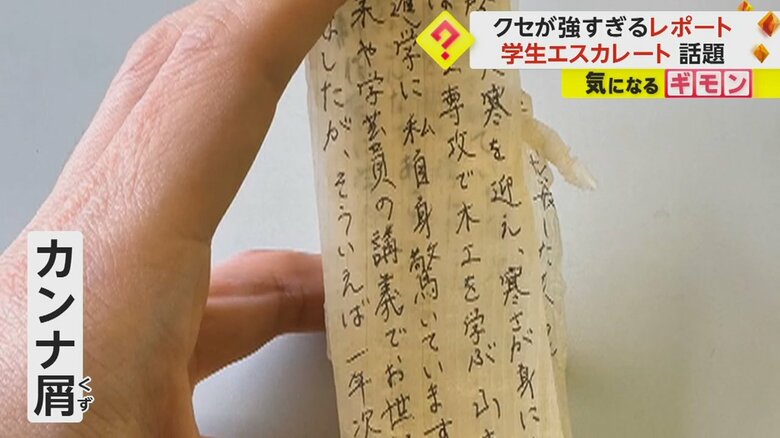 クセが強すぎるレポート
学生エスカレート 話題
?
気になる ギモン
カンナ屑
くず
寒を迎え、寒さが身に
専攻で木工を学ぶ
進学に私自身驚いています
や学芸員の講義でお世
したが、そういえば一年次